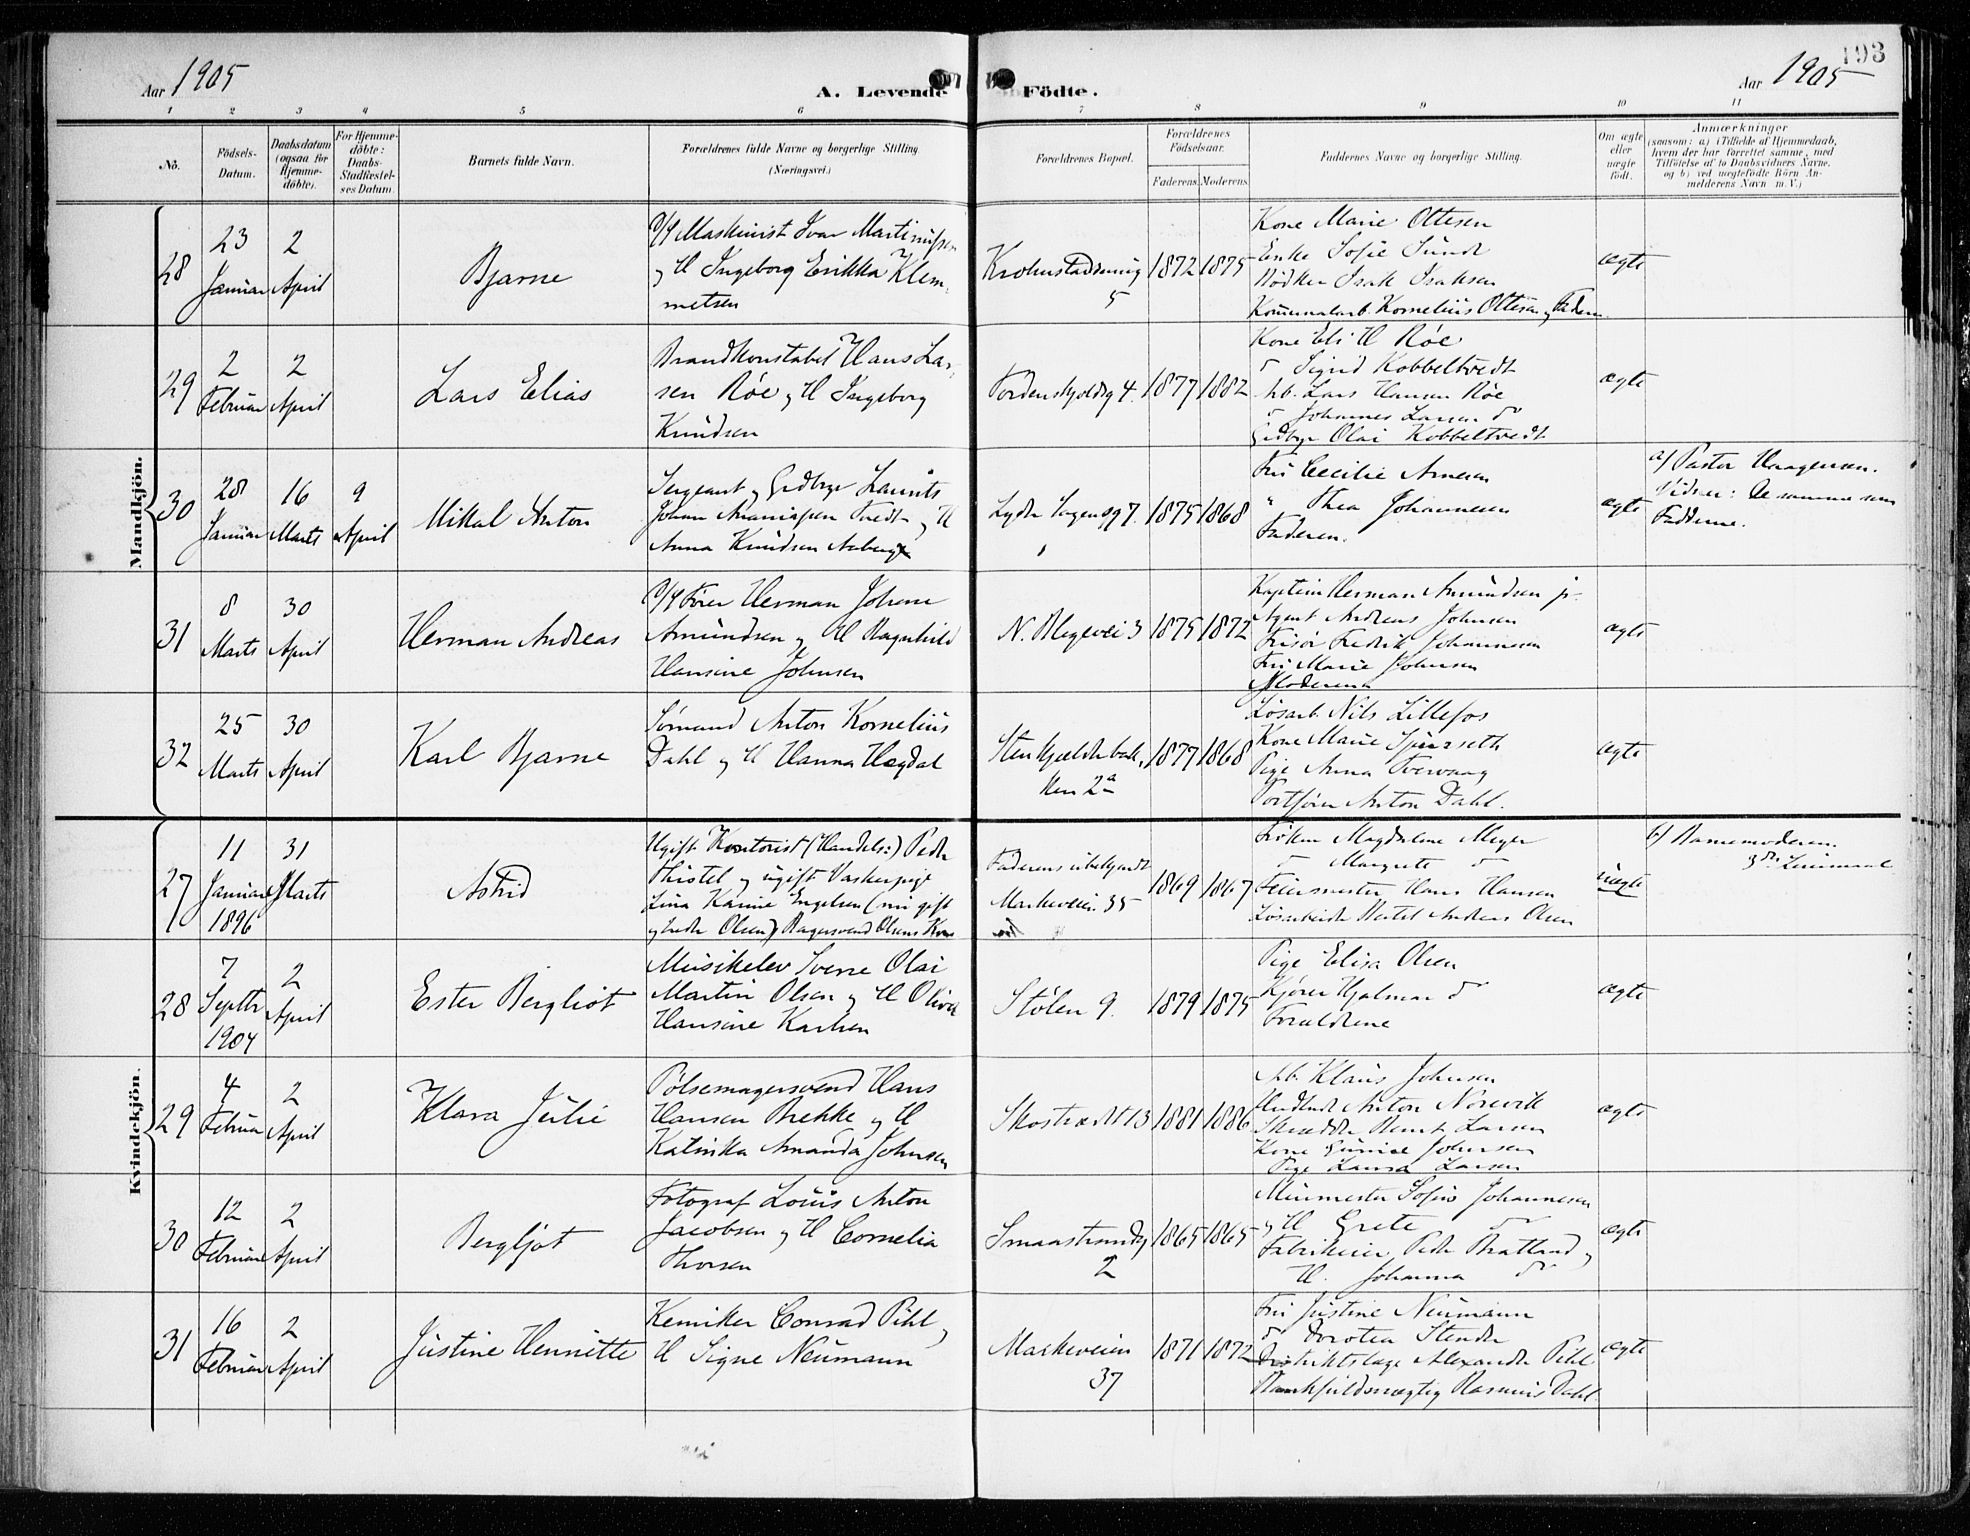 193
Aar 1905
A. Levende Födte.
Aar 1905
1 2 3 4 5 6 7 8 9 10 11
No.
Födsels-Datum.
Daabsdatum (ogsaa for Hjemme-döbte).
For Hjemme-döbte: Daabs-Stadfæstel-ses Datum.
Barnets fulde Navn.
Forældrenes fulde Navne og borgerlige Stilling.
(Næringsvei.)
Forældrenes Bopæl.
Forældrenes Födselsaar.
Faderens Moderens
Faddernes Navne og borgerlige Stilling.
Om ægte eller uægte födt.
Anmærkninger
(saasom: a) i Tilfælde af Hjemmedaab,
hvem der har forrettet samme, med
Tilföielse af to Daabsvidners Navne,
og b) ved uægtefödte Börn An-
melderens Navn m. V.)
Mandkjön.
28
23 Januar
2 April
Bjarne
Maskinist Ivar Martinussen
og H Ingeborg Erikka Klem-
metsen
5
1872 1875
Kone Marie Ottesen
Enke Sofie Sundt
Bödker Isak Isaksen
Kommunalarb. Kornelius Ottesen, Faderen
ægte
29
2 Februar
2 April
Lars Elias
Brandkonstabel Hans Lar-
sen Röe og H Ingeborg
Knudsen
Tordenskjoldsg 4.
1877 1882
Kone Eli H Röe
Sigrid Kobbeltvedt
Arb. Lars Hansen Röe
Johannes Larsen do
Olai Kobbeltvedt
ægte
30
28 Januar
16 Marts
9 April
Mikal Anton
Sergeant og Laurits
Johan Ananiassen Tvedt og H
Anna Knudsen
Lyder Sagens g 7.
1875 1868
Fru Cecilie Arnesen
" Thea Johannesen
Faderen.
ægte
a) Pastor Haagensen.
Vidner: De samme som
Fadderne.
31
8 Marts
30 April
Herman Andreas
Herman Johan
Amundsen og H Ragnhild
Hansine Johnsen
N. Blegevei 3
1875 1872
Kaptein Herman Amundsen jr.
Agent Andreas Johnsen
Frisör Fredrik Johannesen
Fru Marie Johnsen
Moderen
ægte
32
25 Marts
30 April
Karl Bjarne
Sömand Anton Kornelius
Dahl og H Hanna Hegdal
Stenkjelderbak-
ken 2a
1877 1868
Lösarb. Nils Lillefos
Kone Marie
Pige Anna
Anton Dahl.
ægte
Kvindekjön.
27
11 Januar 1896
31 Marts
Astrid
Ugift Kontorist (Handels:) Peder
Thistel og ugift Vaskerpige
Lina Karine Engelsen (nu gift
Olsen) Bagersvend Olsens Kone
Faderens ubekjendt
Markeveien 35
1869 1867
Fröken Magdalene Meyer
do Margrete do
Feiermester Hans Hansen
Lösarbeider Andreas Olsen
uægte
b) Barnemoderen.
3die Leiermaal
28
7 Septbr 1904
2 April
Ester Bergliot
Musikelev Sverre Olai
Martin Olsen og H Oliva
Hansine Karlsen
Stölen 9.
1879 1875
Pige Elisa Olsen
Kjörer Hjalmar do
Forældrene
ægte
29
4 Februar
2 April
Klara Julie
Pölsemagersvend Hans
Hansen Brekke og H
Katinka Amanda Johnsen
Skostrædet 13
1881 1886
Arb. Klaus Johnsen
Anton Norevik
Skrædder Bernt Larsen
Kone Gurine Johnsen
Pige Laura Larsen
ægte
30
12 Februar
2 April
Bergljot
Fotograf Louis Anton
Jacobsen og H Cornelia
Thorsen
Smaastrandg
2
1865 1865
Murmester Sofus Johannesen
og H Grete do
Fabrikeier Peder Bratland og
H. Johanna do
ægte
31
16 Februar
2 April
Justine Henriette
Kemiker Conrad Pihl og
H Signe Neumann
Markeveien
37
1871 1872
Fru Justine Neumann
do Dorotea Stender
Distriktslæge Alexander Pihl
Bankfuldmægtig Rasmus Dahl.
ægte